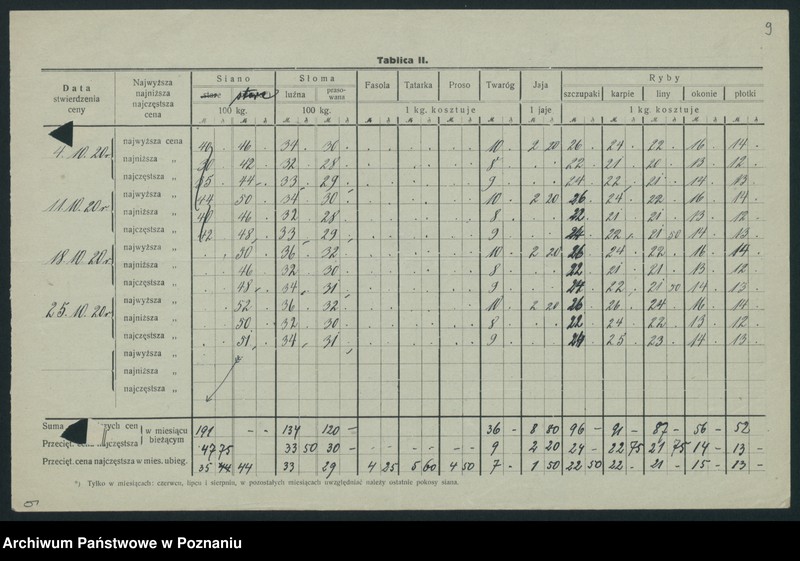 9
Tablica II.
Data stwierdzenia ceny | Najwyższa najniższa najczęstsza cena | Siano | Słoma | Fasola | Tatarka | Proso | Twaróg | Jaja | Ryby
stare | stare | luźna | praso-wana | szczupaki | karpie | liny | okonie | płotki
100 kg. | 100 kg. | 1 kg. kosztuje | 1 jaje | 1 kg. kosztuje
najwyższa cena 40 46 34 30 10 2 20 26 24 22 16 14
4.10.20r. najniższa „ 30 42 32 28 8 22 21 20 13 12
najczęstsza „ 35 44 33 29 9 24 22 21 14 13
najwyższa „ 44 50 34 30 10 2 20 26 24 22 16 14
11.10.20r. najniższa „ 40 46 32 28 8 22 21 21 13 12
najczęstsza „ 42 48 33 29 9 24 22 21 50 14 13
18.10.20r. najwyższa „ 50 36 32 10 2 20 26 24 22 16 14
najniższa „ 46 32 30 8 22 21 21 13 12
najczęstsza „ 48 34 31 9 24 22 21 50 14 13
25.10.20r. najwyższa „ 52 36 32 10 2 20 26 26 24 16 14
najniższa „ 50 32 30 8 22 24 22 13 12
najczęstsza „ 51 34 31 9 24 25 23 14 13
najwyższa „
najniższa „
najczęstsza „
Suma cen w miesiącu bieżącym 191 - - 134 120 - 36 - 8 80 96 - 91 - 87 - 56 - 52
Przecięt. cena najczęstsza 47 75 33 50 30 - - - - - - - 9 2 20 24 - 22 75 21 75 14 - 13 -
Przecięt. cena najczęstsza w mies. ubieg. 35 44 44 33 29 4 25 5 60 4 50 7 - 1 50 22 50 22 - 21 - 15 - 13 -
*) Tylko w miesiącach: czerwcu, lipcu i sierpniu, w pozostałych miesiącach uwzględniać należy ostatnie pokosy siana.
Archiwum Państwowe w Poznaniu